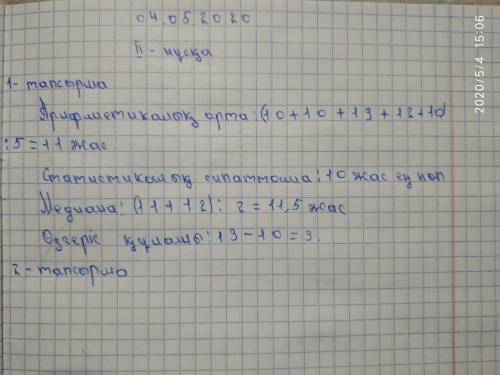 04.05.2020
II - нұсқа
1 - тапсырма
Арифметикалық орта: (10+10+13+12+10)
:5 = 11 жас
Статистикалық сипаттама: 10 жас ең көп
Медиана: (11+12): 2 = 11,5 жас
Өзгеріс құламы: 13 - 10 = 3.
2 - тапсырма
2020/5/4 15:06